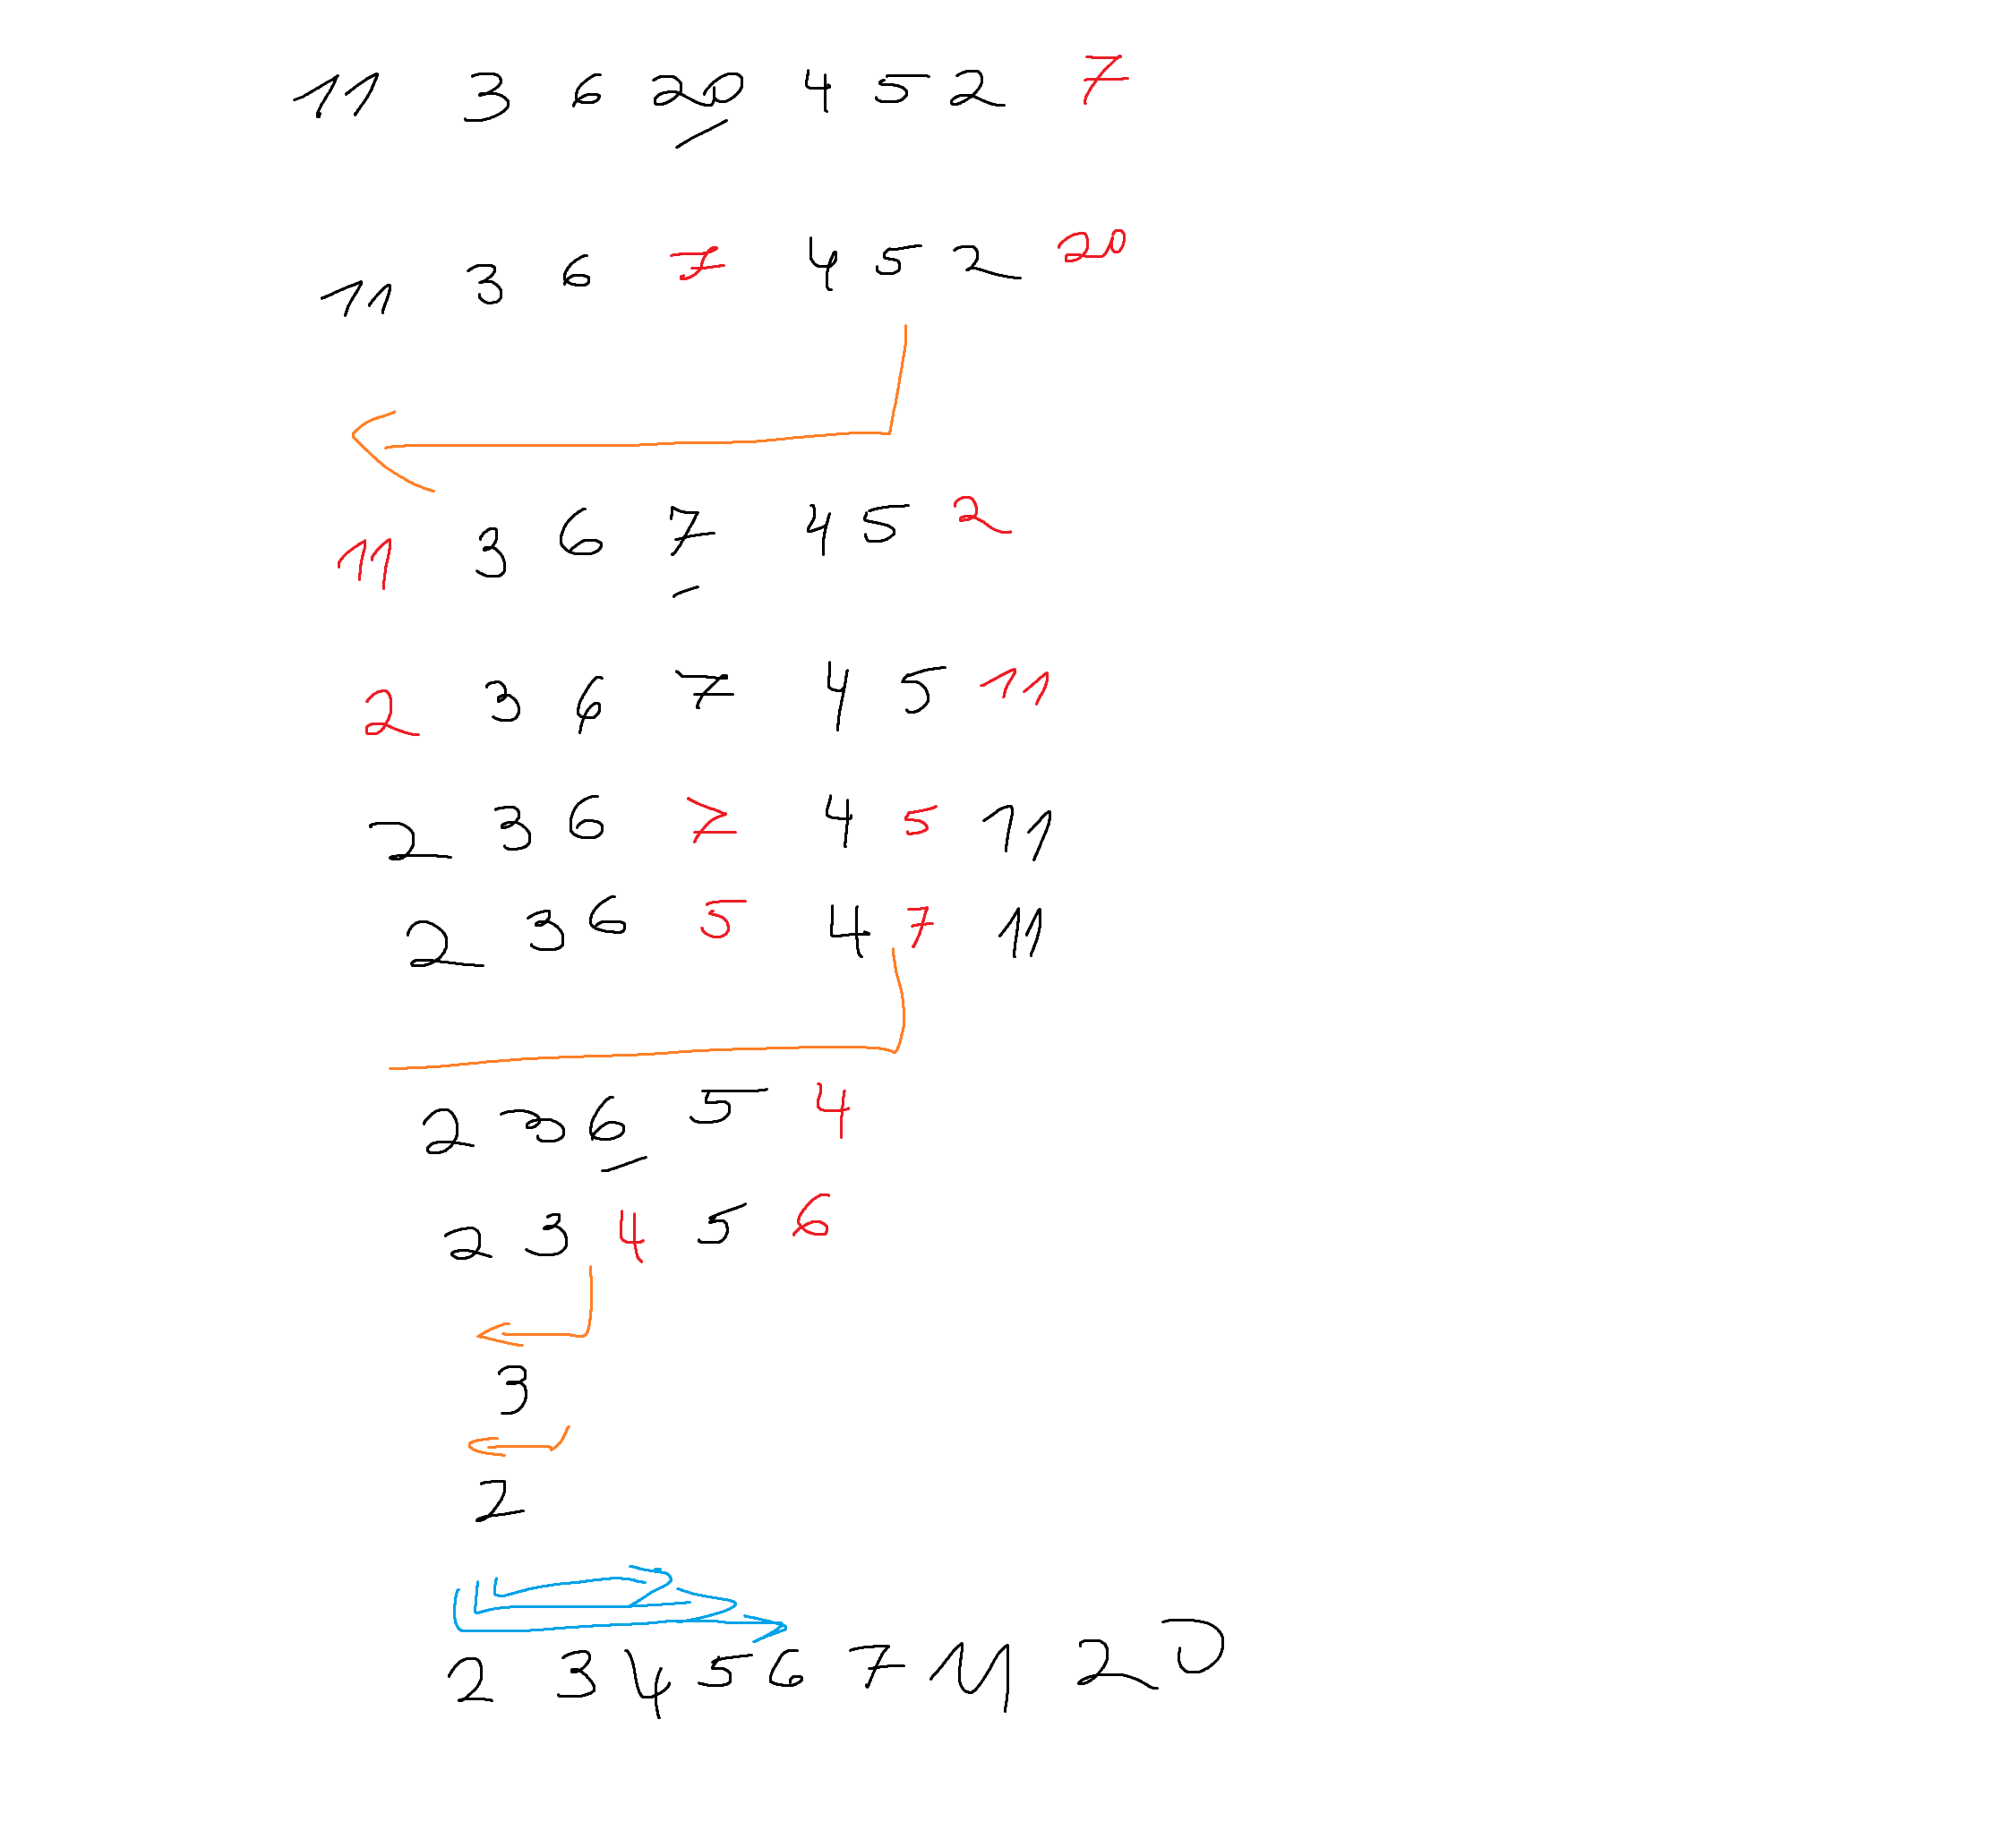 11 3 6 20 4 5 2 7
11 3 6 7 4 5 2 20
11 3 6 7 4 5 2
2 3 6 7 4 5 11
2 3 6 7 4 5 11
2 3 6 5 4 7 11
2 3 6 5 4
2 3 4 5 6
3
2
2 3 4 5 6 7 11 20